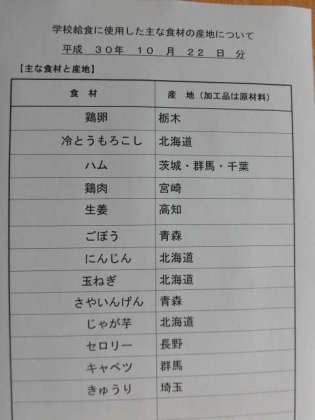 学校給食に使用した主な食材の産地について
平成 30年 10 月 22 日 分
【主な食材と産地】
食 材 産 地（加工品は原材料）
鶏卵 栃木
冷とうもろこし 北海道
ハム 茨城・群馬・千葉
鶏肉 宮崎
生姜 高知
ごぼう 青森
にんじん 北海道
玉ねぎ 北海道
さやいんげん 青森
じゃが芋 北海道
セロリー 長野
キャベツ 群馬
きゅうり 埼玉